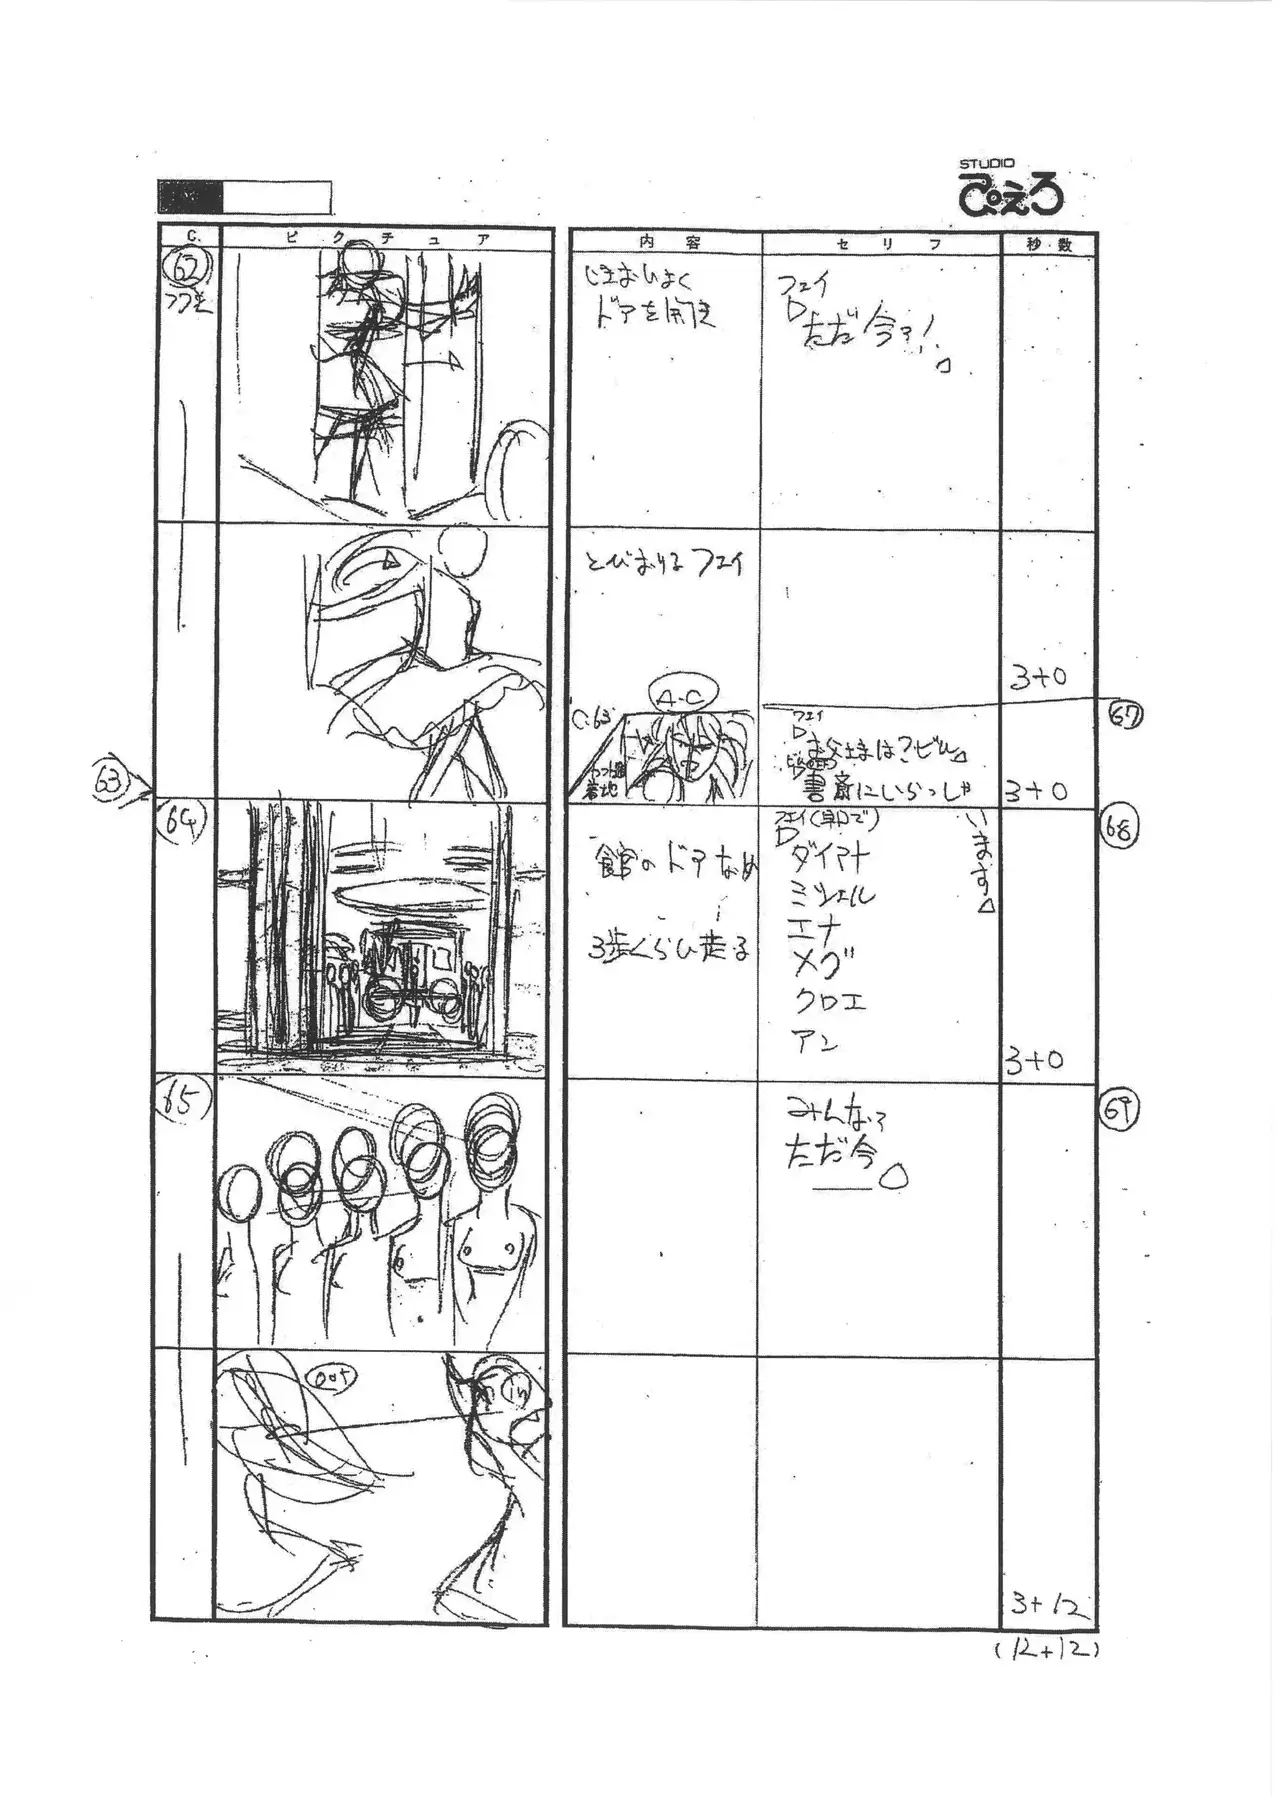 STUDIO
ぴえろ
C.
ピクチュア
内容
セリフ
秒・数
62
つづき
いきおいよく
ドアを開き
フェイ
ただ今ァ!
とびおりるフェイ
3+0
A・C
C.63
着地
フェイ
お父さまは?ビル
書斎にいらっしゃ
います
3+0
67
63
64
館のドアなめ
3歩くらい走る
フェイ(早口で)
ダイアナ
ミシェル
エナ
メグ
クロエ
アン
3+0
68
65
みんなァ
ただ今
69
out
in
3+12
(12+12)